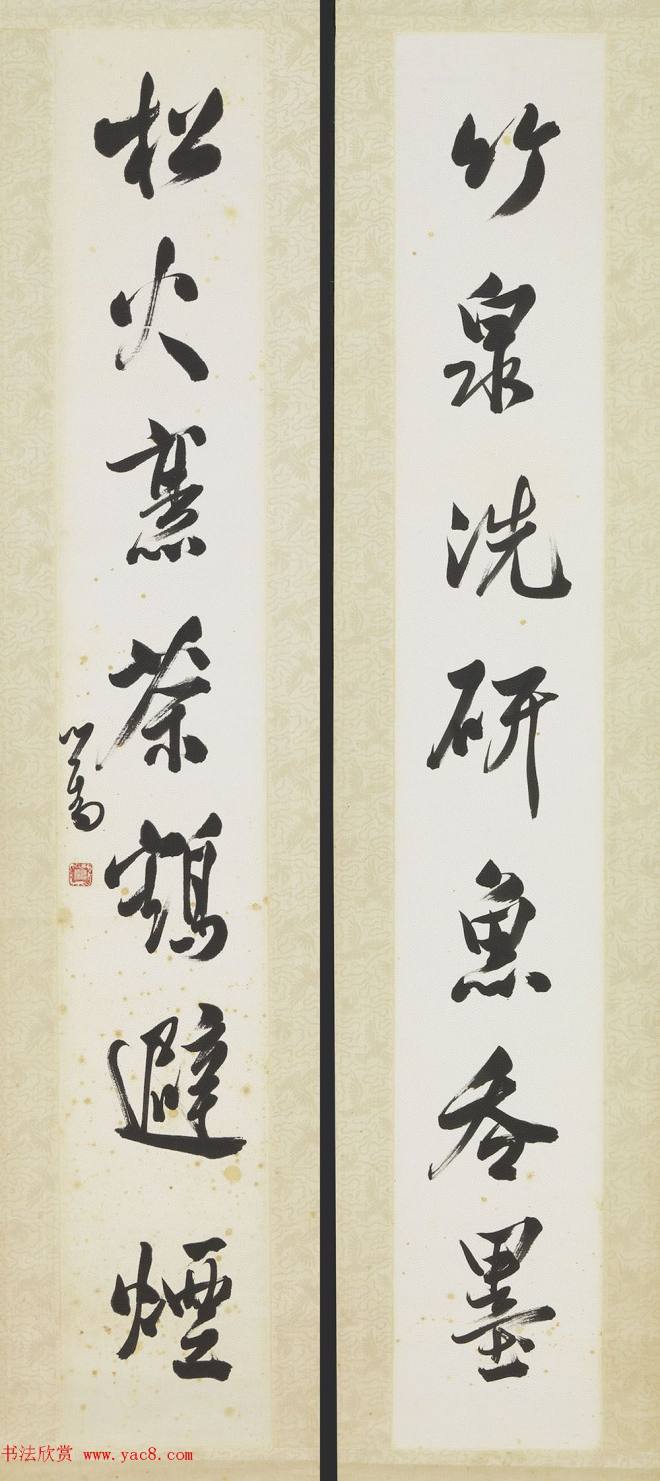 竹泉洗研魚吞墨
松火烹茶鶴避煙
心畬
书法欣赏 www.yac8.com